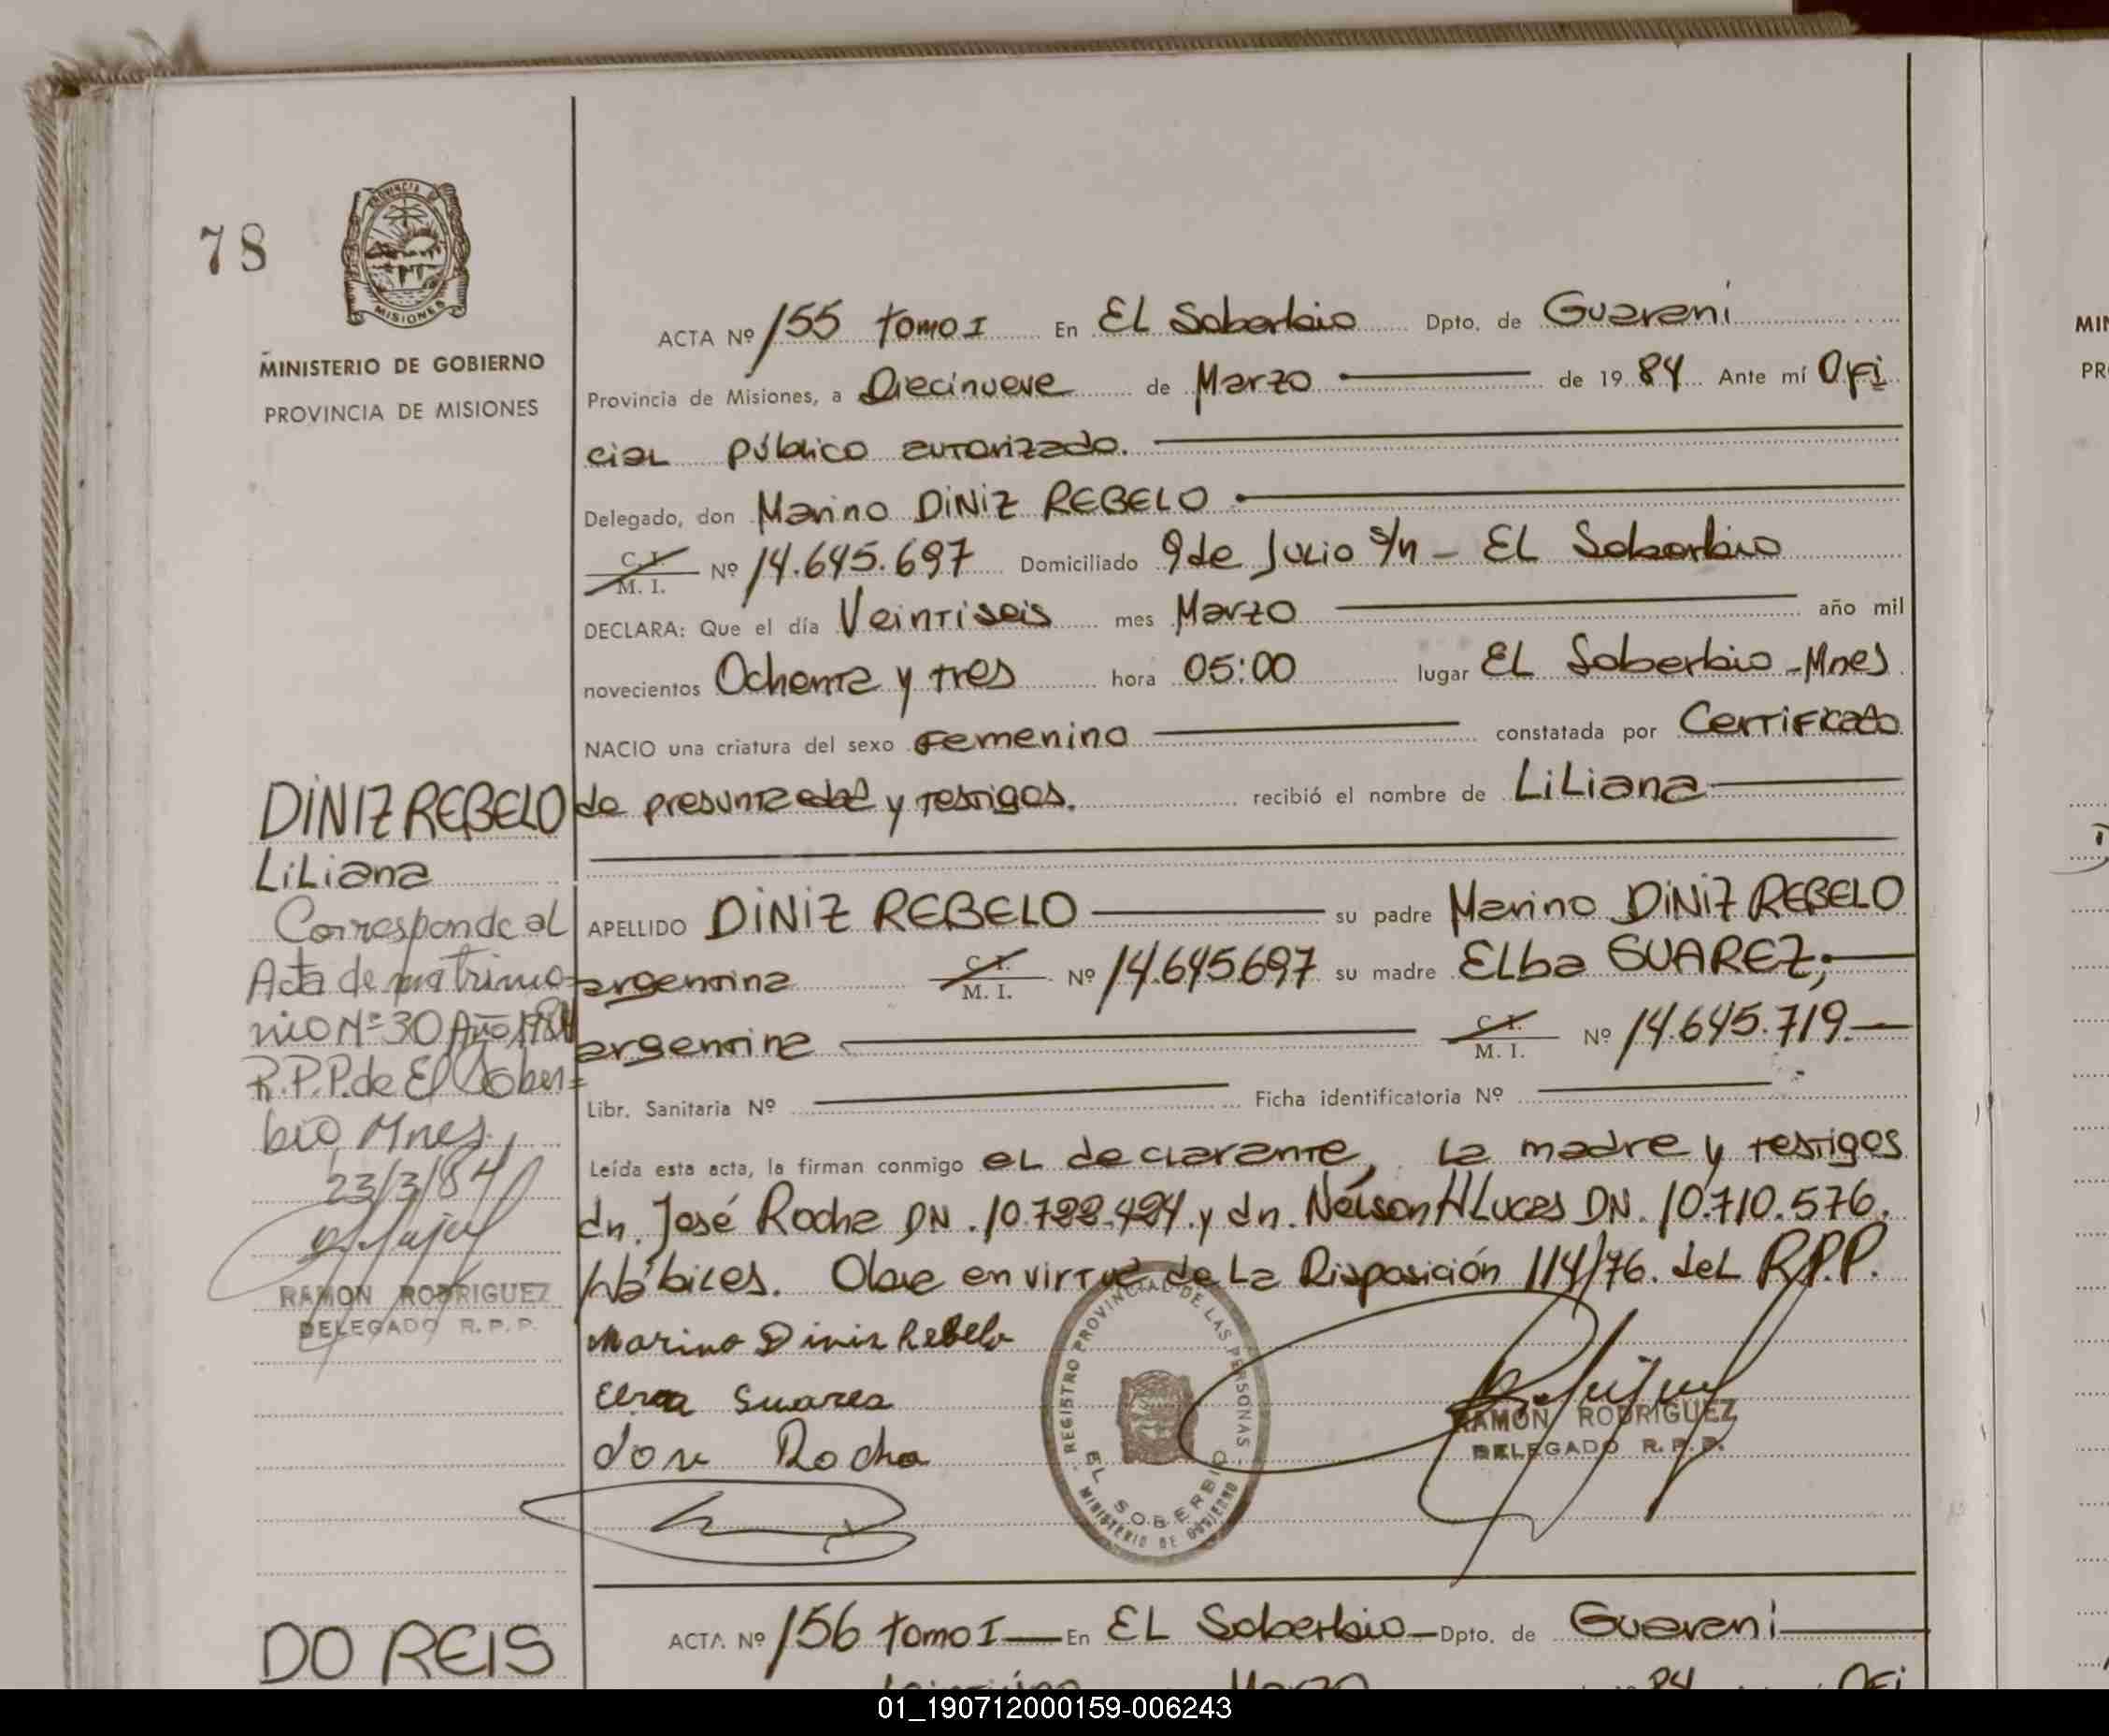 78
PROVINCIA DE
MISIONES
MINISTERIO DE GOBIERNO
PROVINCIA DE MISIONES
ACTA Nº 155 tomo I En EL Soberbio Dpto. de Guarani
Provincia de Misiones, a Diecinueve de Marzo de 1984 Ante mí Ofi
cial público autorizado.
Delegado, don Marino DINIZ REBELO
C. I. M. I. Nº 14.645.697 Domiciliado 9 de Julio S/n - EL Soberbio
DECLARA: Que el día Veintiseis mes Marzo año mil
novecientos Ochenta y tres hora 05:00 lugar EL Soberbio - Mnes
NACIO una criatura del sexo Femenino constatada por Certificado
de presunta edad y testigos. recibió el nombre de Liliana
DINIZ REBELO
Liliana
Corresponde al
Acta de matrimo=
nio Nº 30 Año 1984
R.P.P. de El Sober=
bio, Mnes,
23/3/84
RAMON RODRIGUEZ
DELEGADO R. P. P.
APELLIDO DINIZ REBELO su padre Marino DINIZ REBELO
argentina C. I. M. I. Nº 14.645697 su madre Elba SUAREZ;
argentina C. I. M. I. Nº 14.645.719.
Libr. Sanitaria Nº Ficha identificatoria Nº
Leída esta acta, la firman conmigo el declarante, la madre y testigos
dn. José Rocha DN. y dn. Nelson H Lucas DN. 10.710.576.
hábiles. Obre en virtud de la Disposición 114/76. del R.P.P.
Marino Diniz Rebelo
Suarez
Jose Rocha
REGISTRO PROVINCIAL DE LAS PERSONAS
EL SOBERBIO
MINISTERIO DE GOBIERNO
RAMON RODRIGUEZ
DELEGADO R. P. P.
DO REIS
ACTA Nº 156 tomo I En EL Soberbio Dpto. de Guarani
Marzo 84 Ofi
MIN
PR
01_190712000159-006243